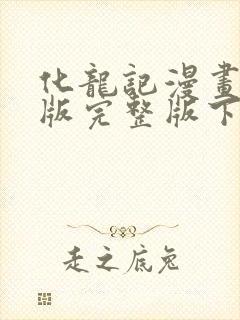 化龍記漫畫
版完整版下
走之底兔